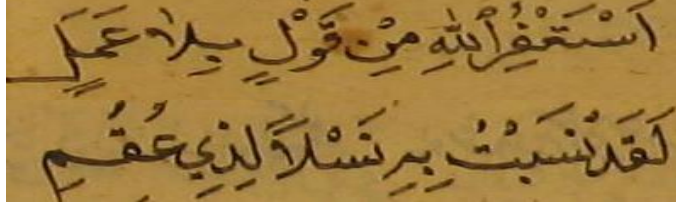 اَسْتَغْفِرُ اللّٰهِ مِنْ قَوْلٍ بِلاَ عَمَلٍ
لَقَدْ نَسَبْتُ بِهِ نَسْلاً لِذِي عُقُمِ